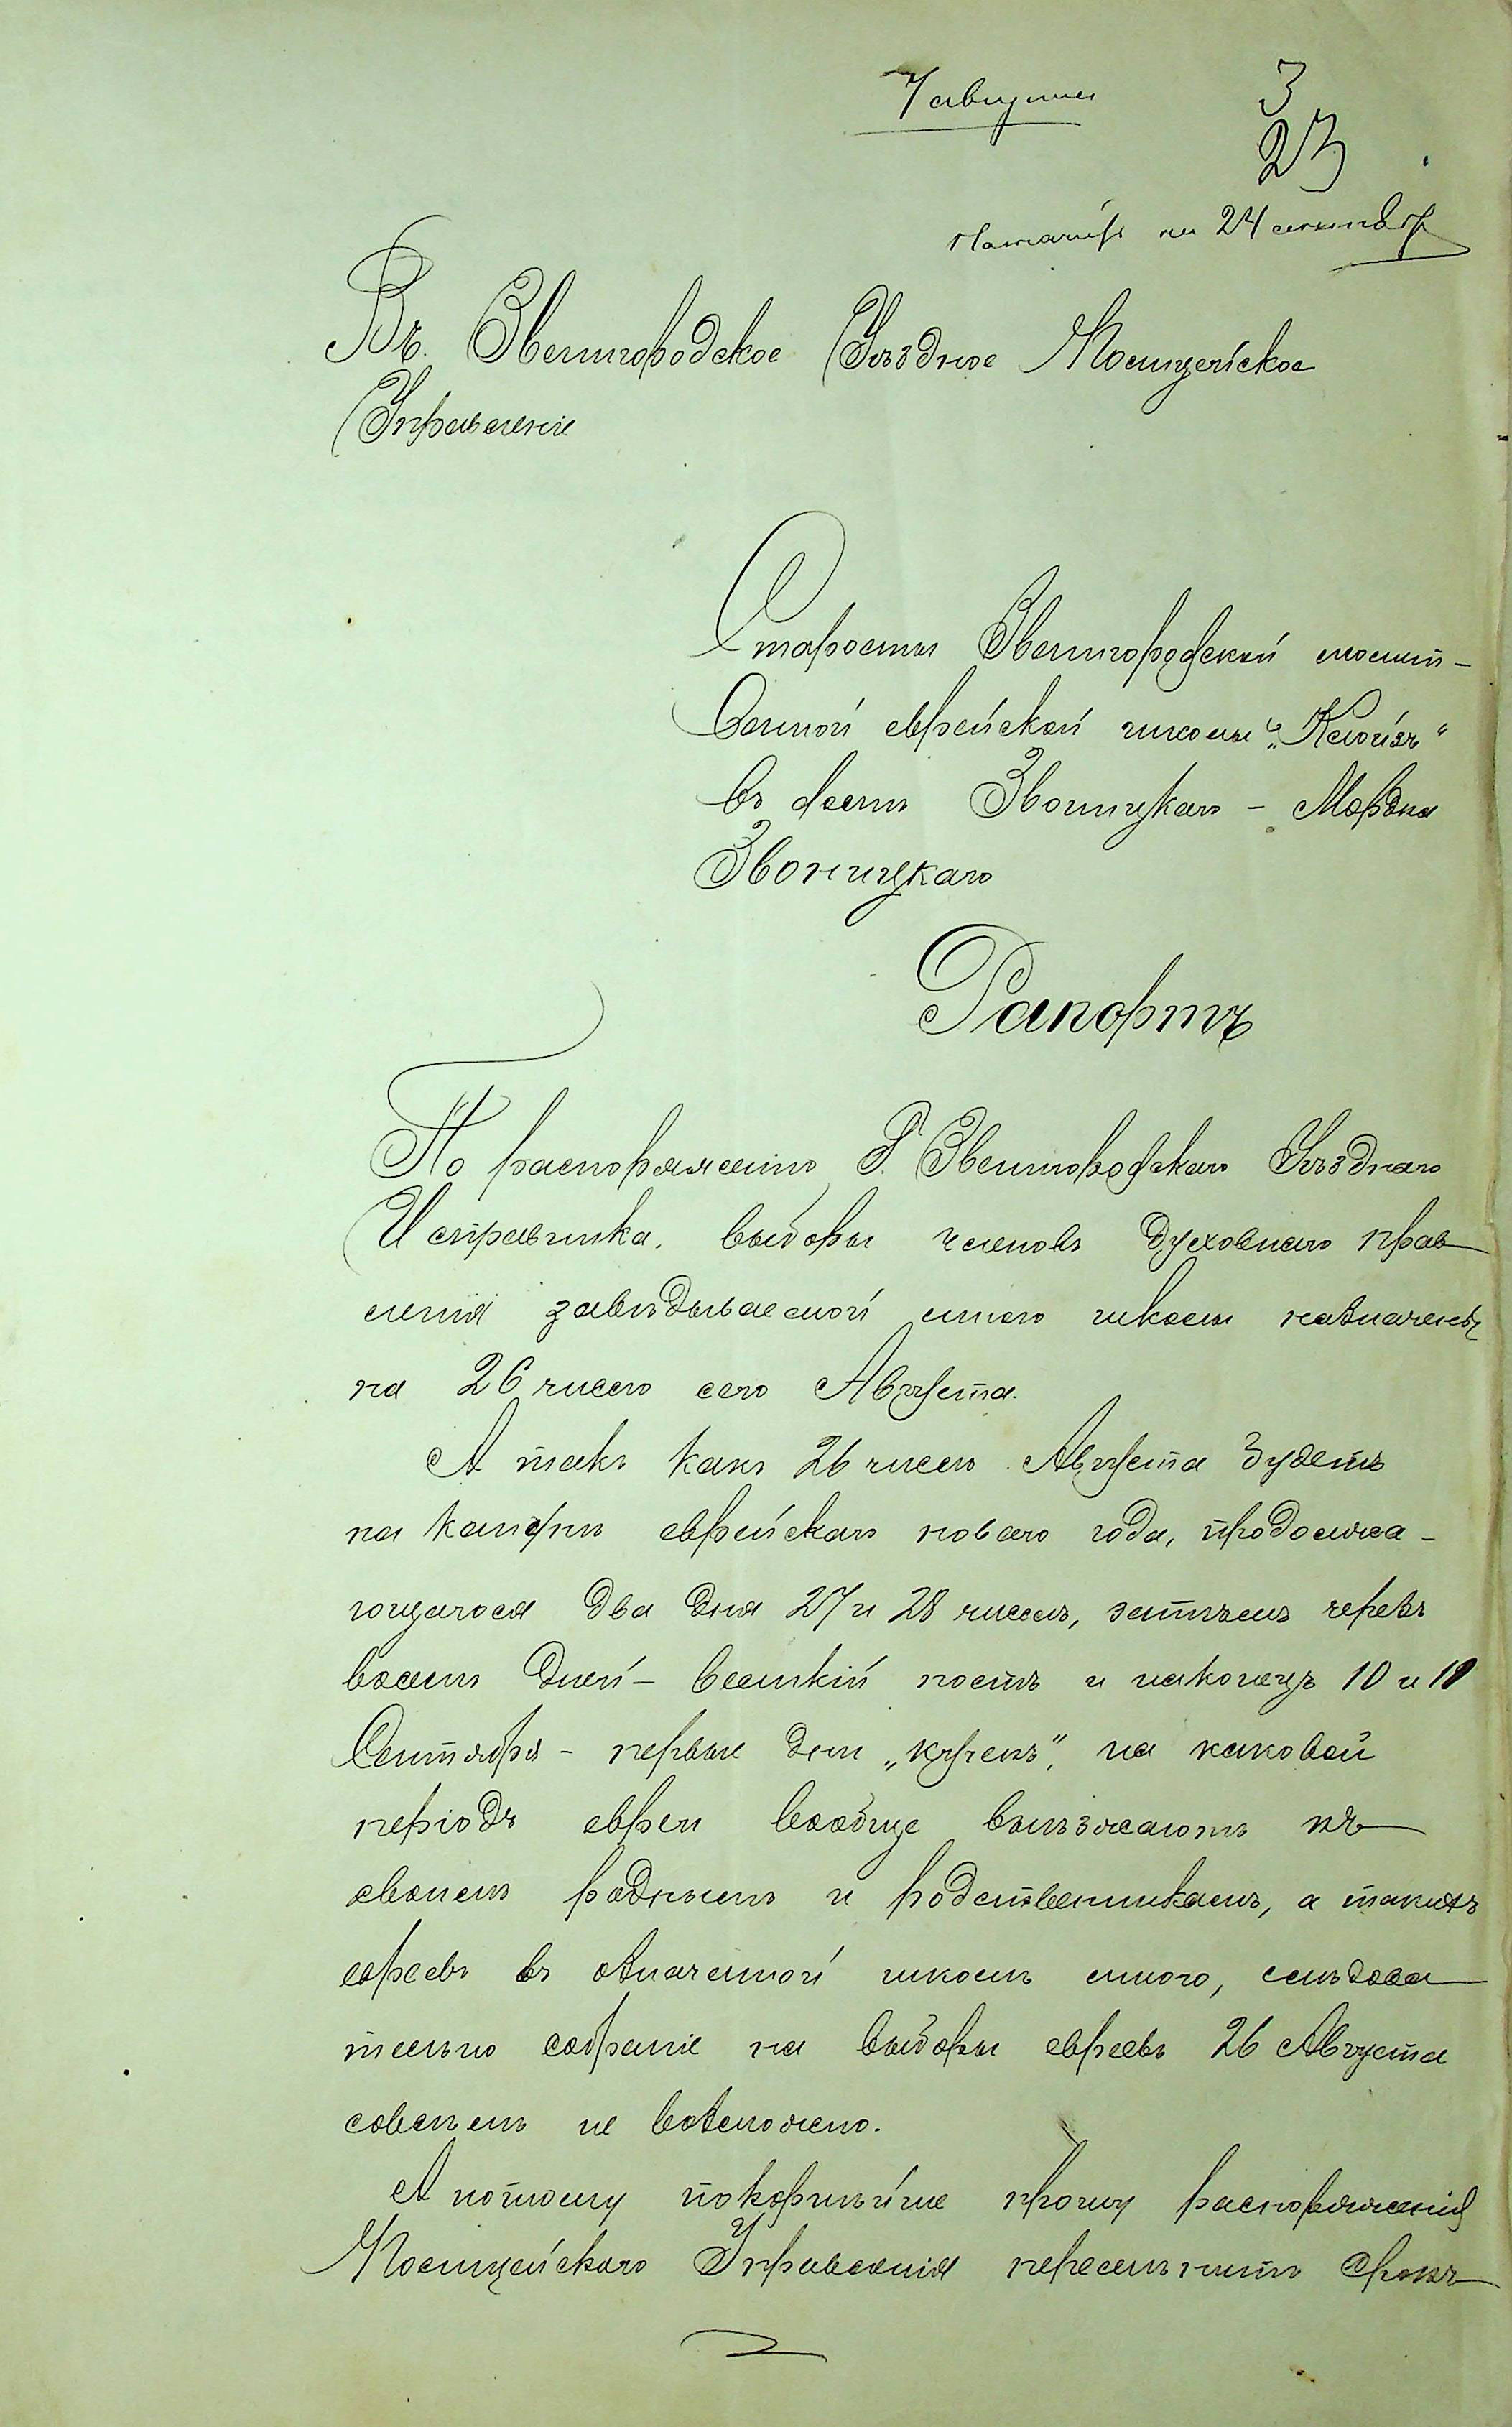 3
23
на 24 сентября
Въ Звенигородское Уѣздное Полицейское
Управленіе
Старосты Звенигородской молит-
венной еврейской школы „Клойзъ"
въ домѣ Звоницкаго - Мордка
Звоницкаго
Рапортъ
По распоряженію Г. Звенигородскаго Уѣзднаго
Исправника, выборы членовъ духовнаго прав
ленія завѣдываемой мною школы назначены
на 26 число сего Августа.
А такъ какъ 26 число Августа будетъ
на канунѣ еврейскаго новаго года, продолжа-
ющагося два дня 27 и 28 числъ, затѣмъ черезъ
восемь дней - великій постъ и наконецъ 10 и 11
Сентября - первые дни „кучекъ", на каковой
періодъ евреи вообще выѣзжаютъ къ
своимъ роднымъ и родственникамъ, а такихъ
евреевъ въ означенной школѣ много, слѣдова
тельно собраніе на выборы евреевъ 26 Августа
совсѣмъ не возможно.
А потому покорнѣйше прошу распоряженія
Полицейскаго Управленія перемѣнить срокъ